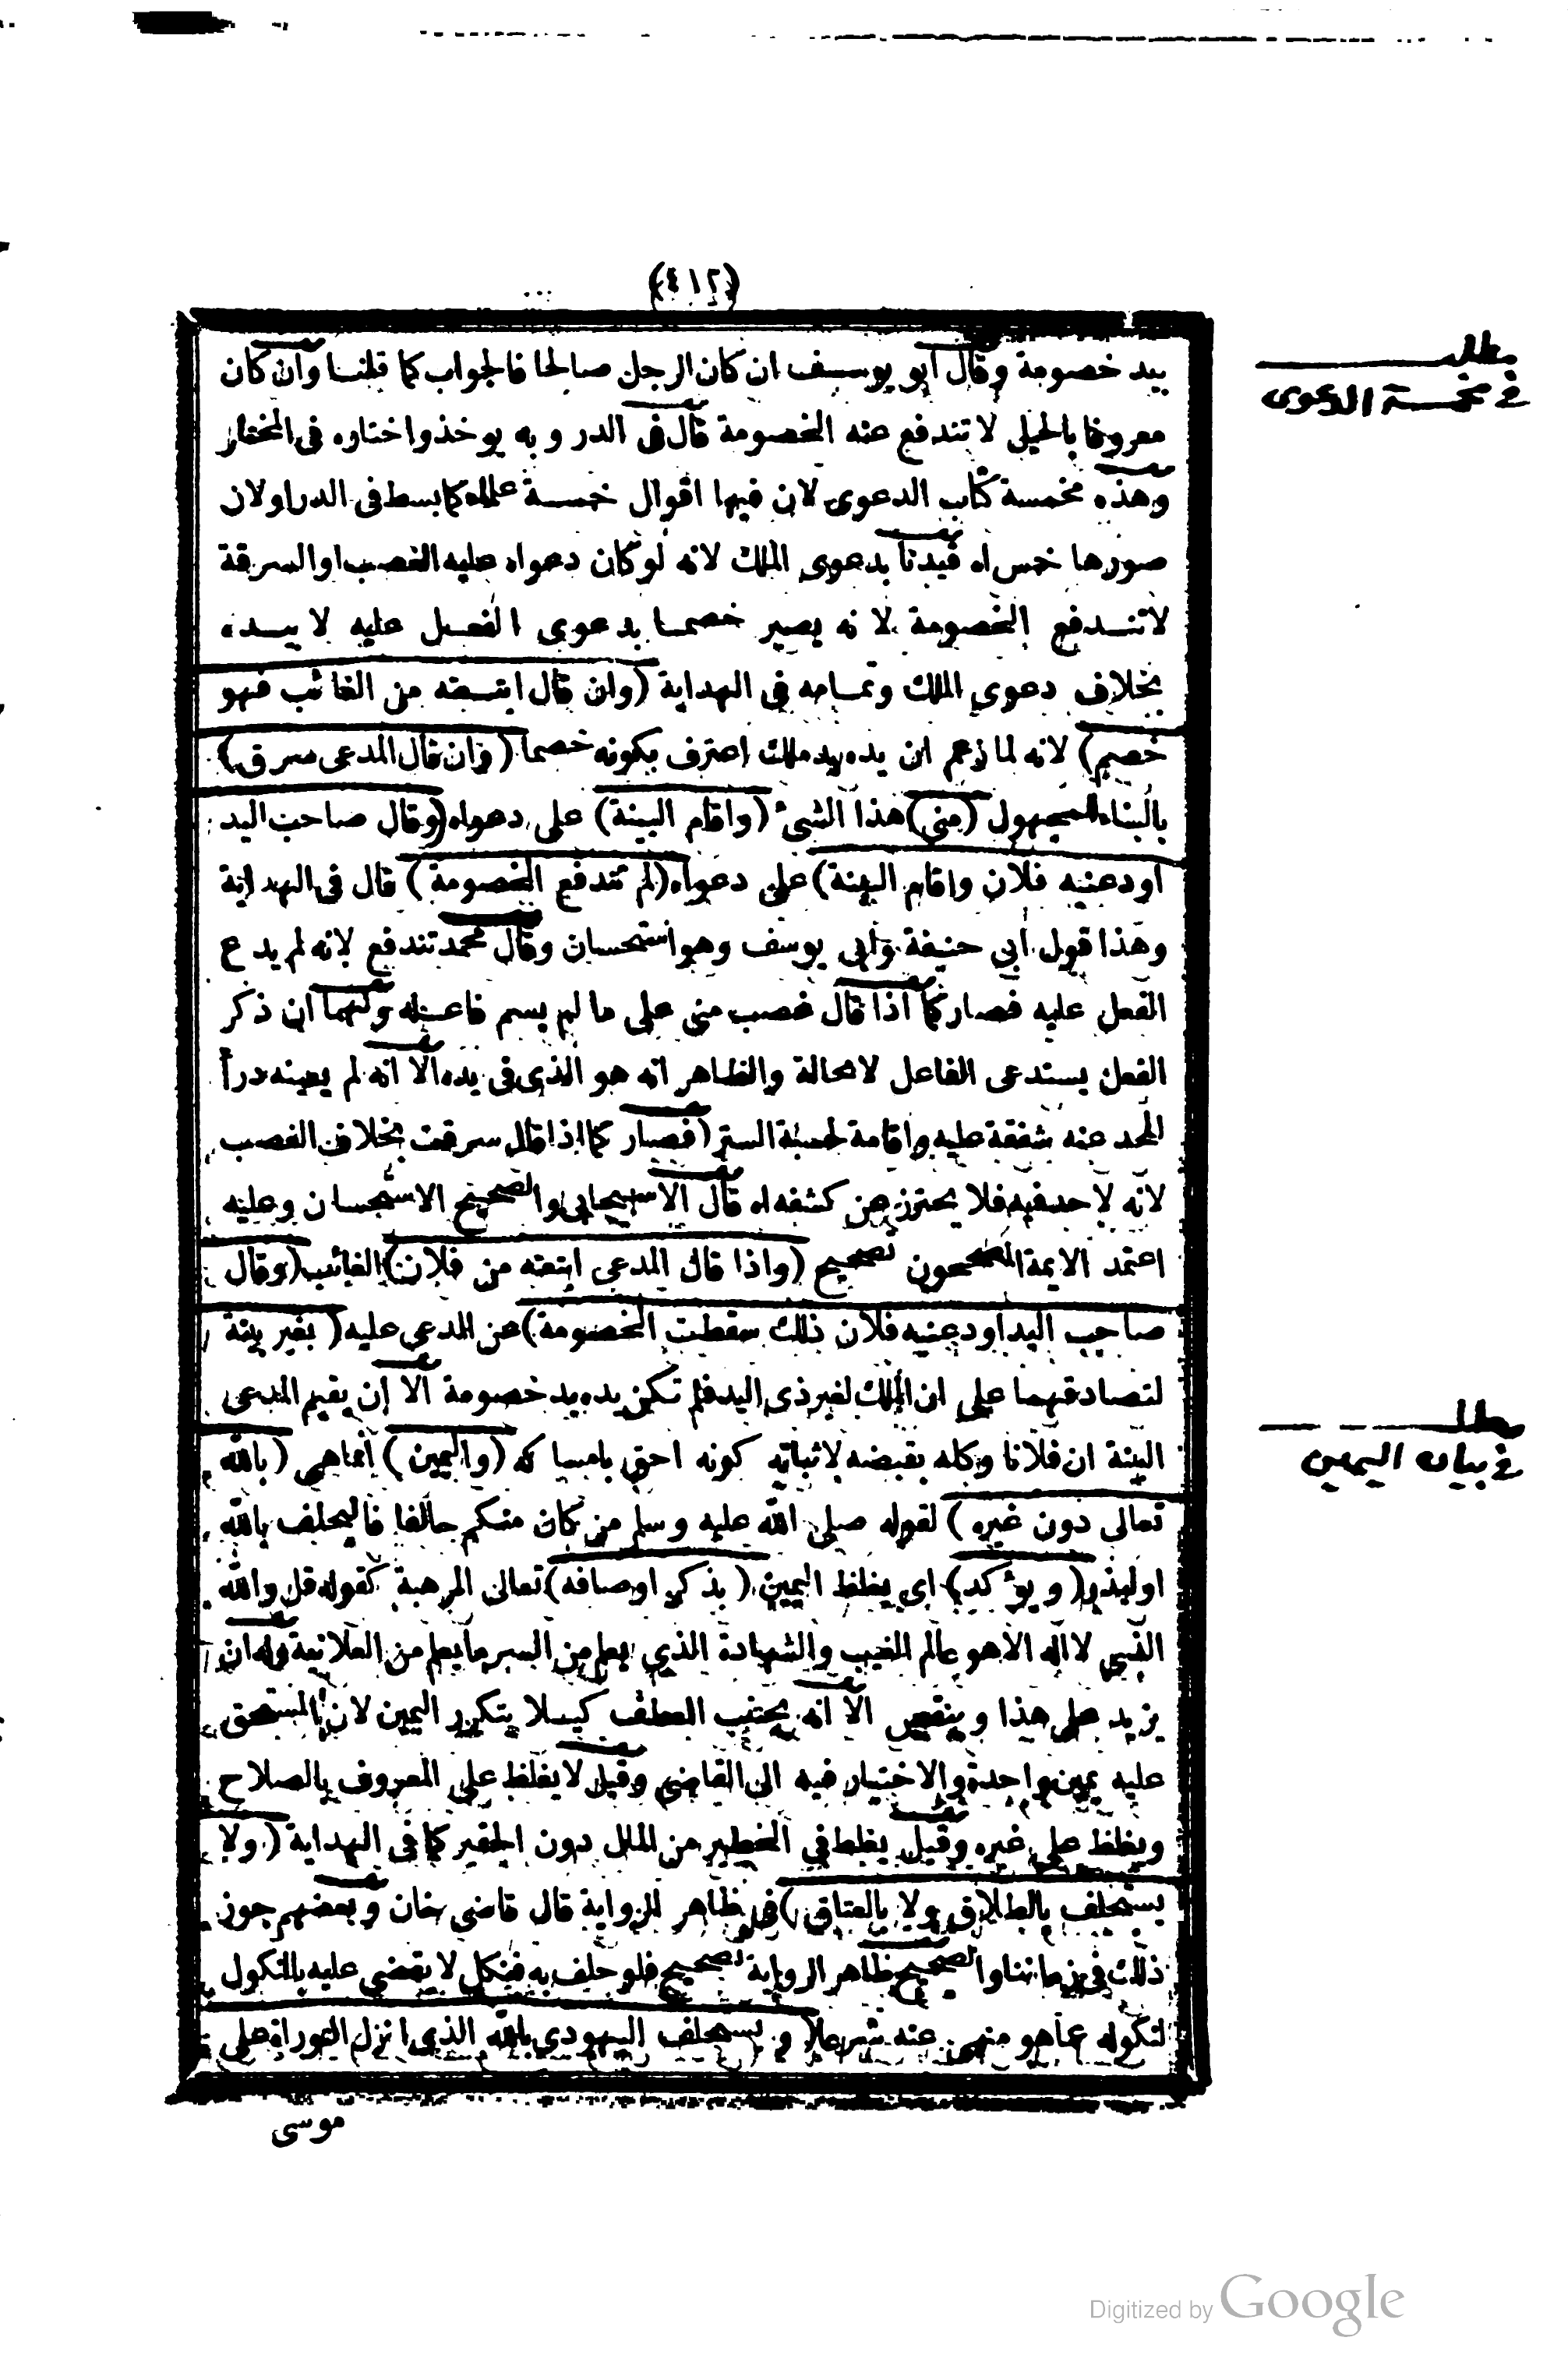 (٤١٢)
بيد خصومة وقال ابو يوسف ان كان الرجل صالحا فالجواب كما قلنا وان كان
معروفا بالحيل لا تندفع عنه الخصومة قال فى الدر وبه يوخذ واختاره فى المختار
وهذه مخمسة كتاب الدعوى لان فيها اقوال خمسة علماء كما بسط فى الدر او لان
صورها خمس اه قيدنا بدعوى الملك لانه لو كان دعواه عليه الغصب او السرقة
لاتندفع الخصومة لانه يصير خصما بدعوى الفعل عليه لا بيده
بخلاف دعوى الملك وتمامه فى الهداية (وان قال ابتعته من الغائب فهو
خصم) لانه لما زعم ان يده يد ملك اعترف بكونه خصما (وان قال المدعى سرق)
بالبناء للمجهول (منى) هذا الشئ (واقام البينة) على دعواه (وقال صاحب اليد
اودعنيه فلان واقام البينة) على دعواه (لم تندفع الخصومة) قال فى الهداية
وهذا قول ابى حنيفة وابى يوسف وهو استحسان وقال محمد تندفع لانه لم يدع
الفعل عليه فصار كما اذا قال غصب منى على ما لم يسم فاعله ولهما ان ذكر
الفعل يستدعى الفاعل لا محالة والظاهر انه هو الذى فى يده الا انه لم يعينه درأ
للحد عنه شفقة عليه واقامة لحسبة الستر (فصار كما اذا قال سرقت بخلاف الغصب
لانه لا حد فيه فلا يحترز عن كشفه اه قال الاسبيجابى والصحيح الاستحسان وعليه
اعتمد الايمة المصححون تصحيح (واذا قال المدعى ابتعته من فلان) الغائب (وقال
صاحب اليد اودعنيه فلان ذلك سقطت الخصومة) عن المدعى عليه (بغير بينة)
لتصادقهما على ان الملك لغير ذى اليد فلم تكن يده يد خصومة الا ان يقيم المدعى
البينة ان فلانا وكله بقبضه لاثباته كونه احق بامساكه (واليمين) انما هى (بالله
تعالى دون غيره) لقوله صلى الله عليه وسلم من كان منكم حالفا فاليحلف بالله
او ليذر (ويؤكد) اى يغلظ اليمين (بذكر اوصافه) تعالى المرهبة كقوله قل والله
الذى لا اله الا هو عالم الغيب والشهادة الذى يعلم من السر ما يعلم من العلانية وله ان
يزيد على هذا وينقص الا انه يجتنب العطف كيلا يتكرر اليمين لان المستحق
عليه يمين واحدة والاختيار فيه الى القاضى وقيل لا يغلظ على المعروف بالصلاح
ويغلظ على غيره وقيل يغلظ فى الخطير من المال دون الحقير كما فى الهداية (ولا
يستحلف بالطلاق ولا بالعتاق) فى ظاهر الرواية قال قاضى خان وبعضهم جوز
ذلك فى زماننا والصحيح ظاهر الرواية تصحيح فلو حلف به فنكل لا يقضى عليه بالنكول
لنكوله عما هو منهى عنه شرعا (ويستحلف اليهودى بالله الذى انزل التوراة على
موسى
مطلب
فى مخمسة الدعوى
مطلب
فى بيان اليمين
Digitized by Google